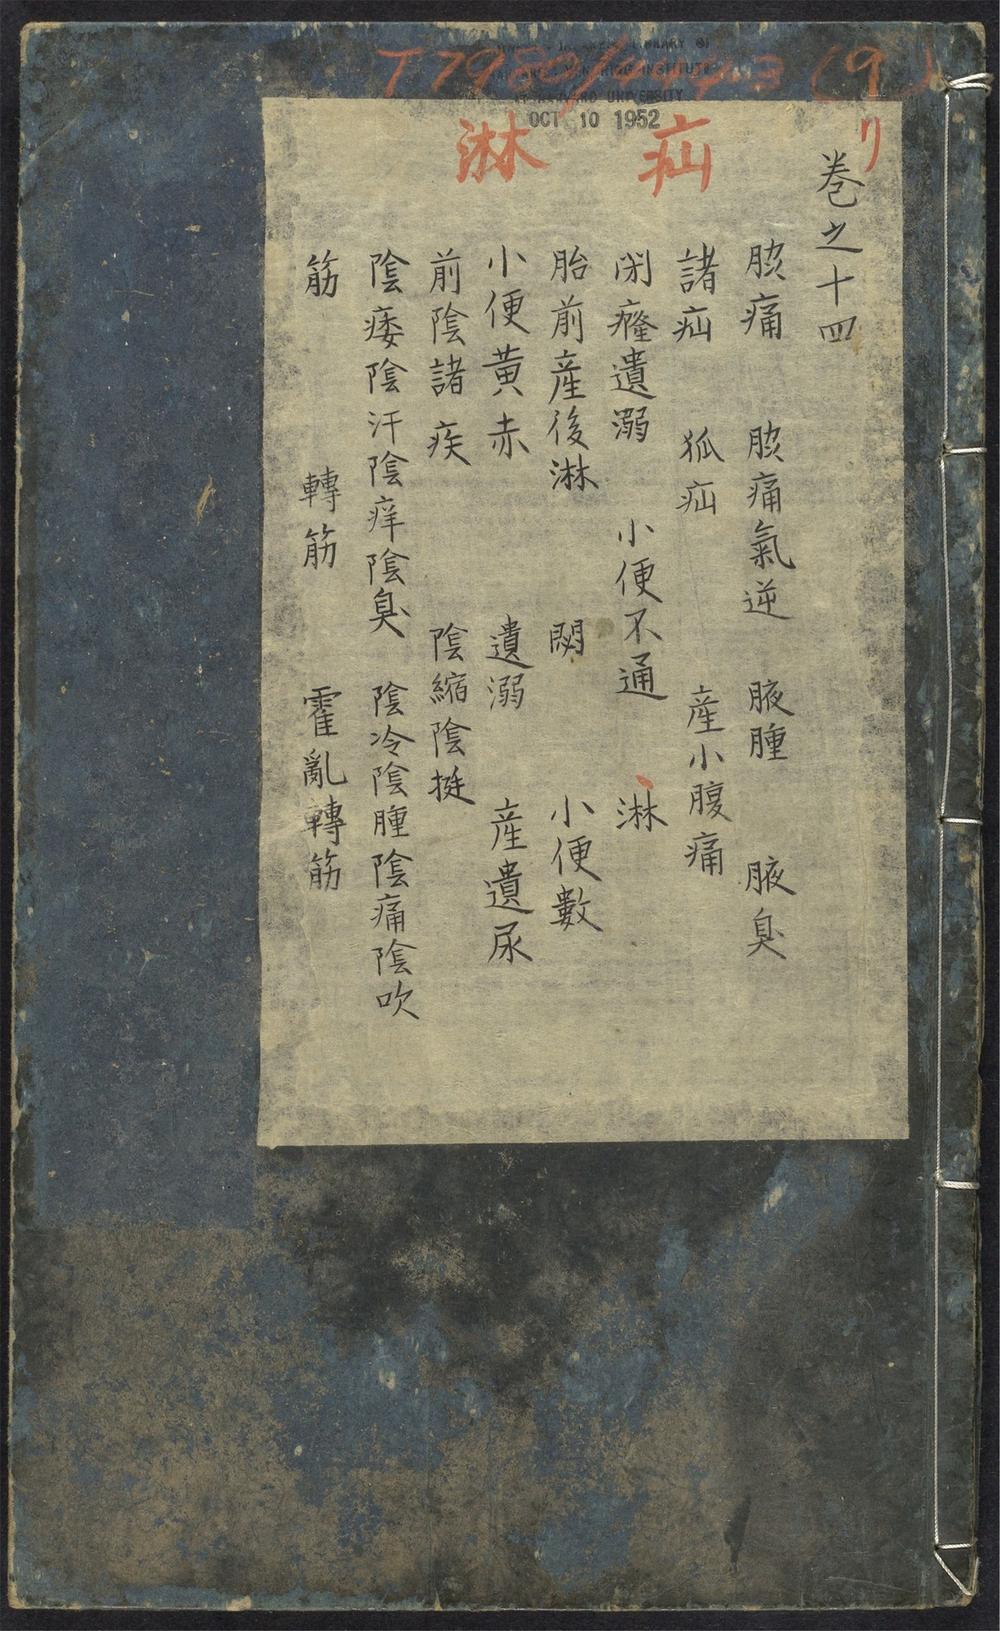 T7980/ 3 (9)
OCT 10 1952
リ
疝 淋
巻之十四
胘痛 胘痛氣逆 腋腫 腋臭
諸疝 狐疝 産小腹痛
閉癃遺溺 小便不通 淋
胎前産後淋 閟 小便數
小便黃赤 遺溺 産遺尿
前陰諸疾 陰縮陰挺
陰痿陰汗陰痒陰臭 陰冷陰腫陰痛陰吹
筋 轉筋 霍亂轉筋